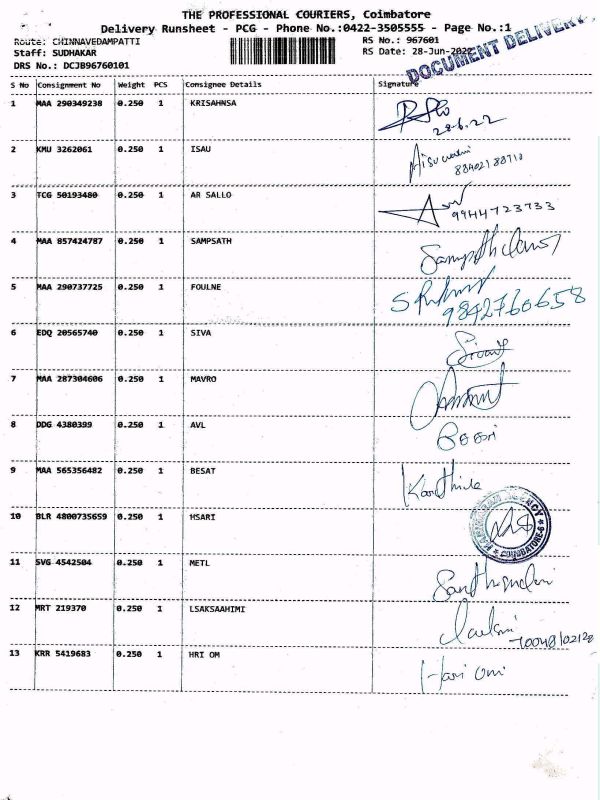 THE PROFESSIONAL COURIERS, Coimbatore
Delivery Runsheet - PCG - Phone No.:0422-3505555 - Page No.:1
Route: CHINNAVEDAMPATTI RS No.: 967601
Staff: SUDHAKAR RS Date: 28-Jun-2022
DRS No.: DCJB96760101
DOCUMENT DELIVERY
S No Consignment No Weight PCS Consignee Details Signature
1 MAA 290349238 0.250 1 KRISAHNSA
28.6.22
2 KMU 3262061 0.250 1 ISAU
3 TCG 50193480 0.250 1 AR SALLO
9944723733
4 MAA 857424787 0.250 1 SAMPSATH
5 MAA 290737725 0.250 1 FOULNE
9842760658
6 EDQ 20565740 0.250 1 SIVA
7 MAA 287304606 0.250 1 MAVRO
8 DDG 4380399 0.250 1 AVL
9 MAA 565356482 0.250 1 BESAT
10 BLR 4800735659 0.250 1 HSARI
COIMBATORE-6
11 SVG 4542504 0.250 1 METL
12 MRT 219370 0.250 1 LSAKSAAHIMI
13 KRR 5419683 0.250 1 HRI OM
Hari Om